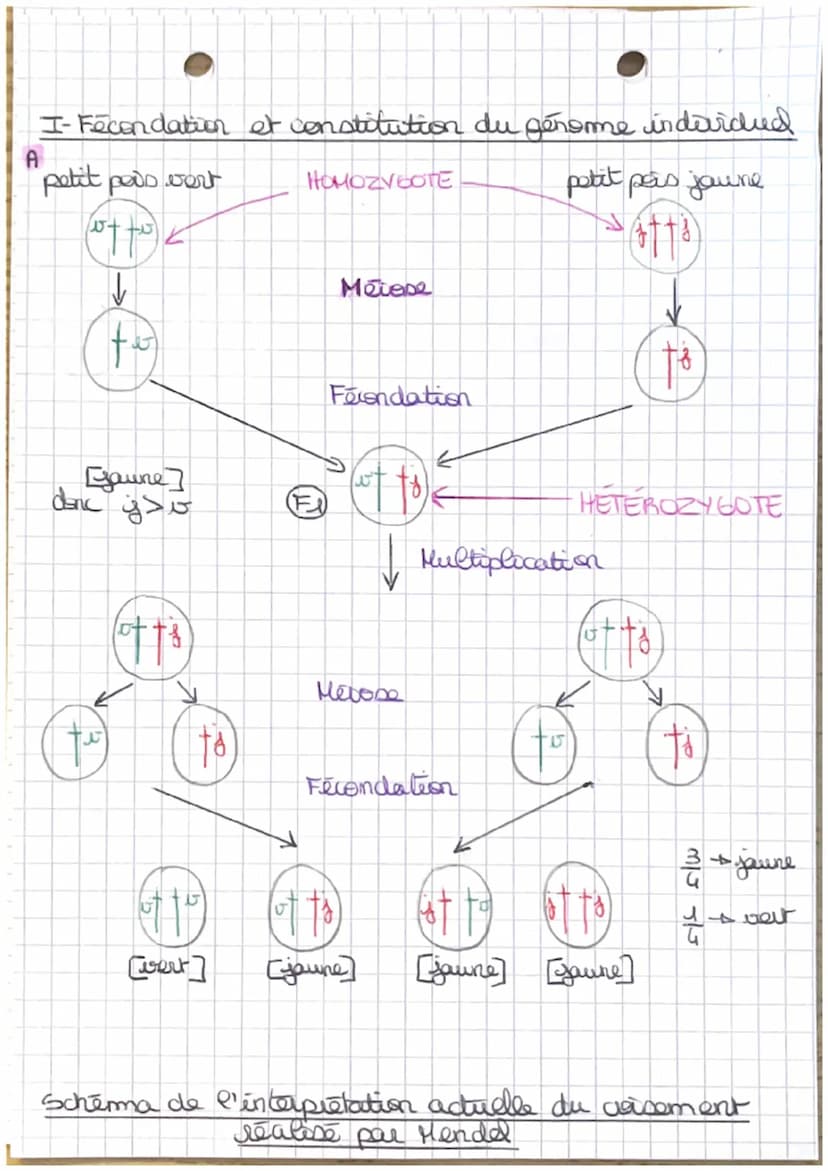 I- Fécondation et constitution du génome individuel
A
petit pois vert HOMOZYGOTE petit pois jaune
v v j j
Méiose
v j
Fécondation
[jaune]
donc j > v F1 v j HÉTÉROZYGOTE
Multiplication
v j v j
Meiose
v j v j
Fécondation
3/4 → jaune
v v v j j v j j 1/4 → vert
[vert] [jaune] [jaune] [jaune]
Schéma de l'interprétation actuelle du croisement
réalisé par Mendel